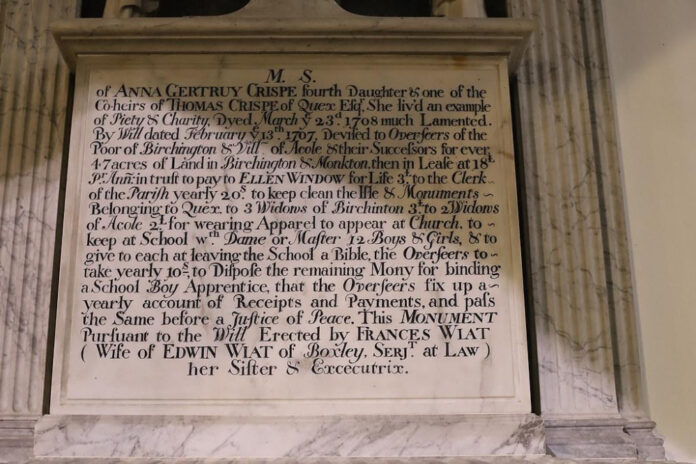 M. S.
of ANNA GERTRUY CRISPE fourth Daughter & one of the
Coheirs of THOMAS CRISPE of Quex Esqr. She liv'd an example
of Piety & Charity, Dyed March ye 23d. 1708 much Lamented.
By Will dated February ye 13th 1707, Devised to Overseers of the
Poor of Birchington & Vill of Acole & their Successors for ever
47 acres of Land in Birchington & Monkton, then in Lease at 18£
Pr. Anñ: in trust to pay to ELLEN WINDOW for Life 3£ to the Clerk
of the Parish yearly 20s. to keep clean the Isle & Monuments ~
Belonging to Quex. to 3 Widows of Birchinton 3£ to 2 Widows
of Acole 2£ for wearing Apparel to appear at Church. to ~
keep at School wth. Dame or Master 12 Boys & Girls, & to
give to each at leaving the School a Bible, the Overseers to ~
take yearly 10s, to Dispose the remaining Mony for binding
a School Boy Apprentice, that the Overseers fix up a ~
yearly account of Receipts and Payments, and pass
the Same before a Justice of Peace. This MONUMENT
Pursuant to the Will Erected by FRANCES WIAT
( Wife of EDWIN WIAT of Boxley, SERJT at LAW )
her Sister & Excecutrix.